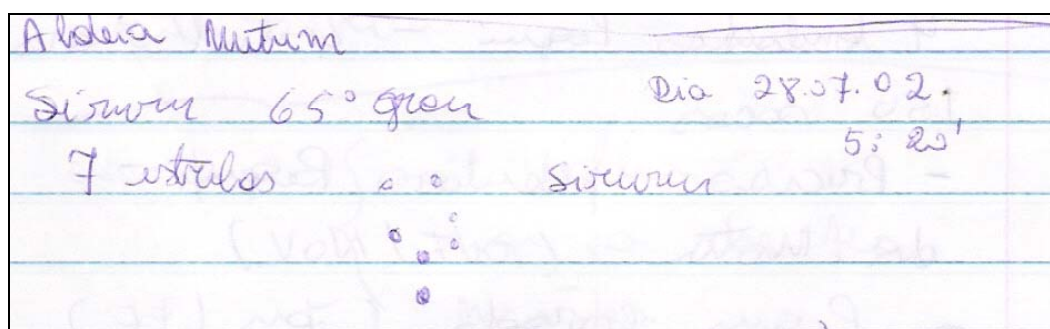 Aldeia Mutum
Siruvru 65° grau Dia 28.07.02.
5:20'
7 estrelas Siruvru